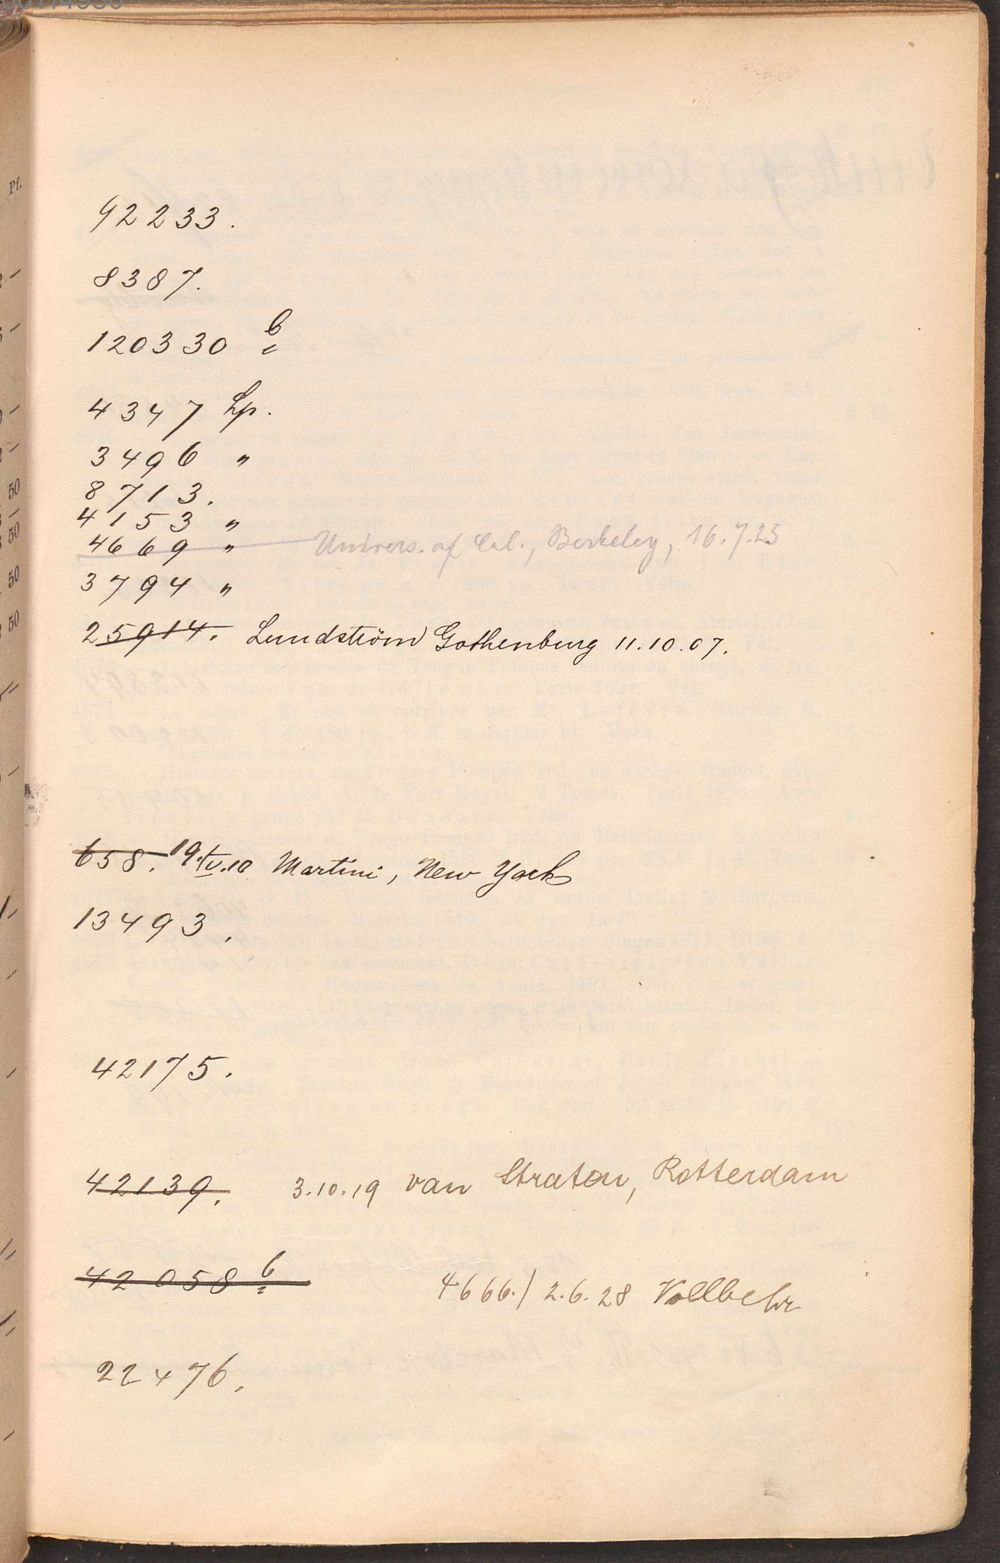 92233.
8387.
120330 b
4347 Lp.
3496 "
8713.
4153 "
4669 " Univers. of Cal., Berkeley, 16.7.25
3794 "
25914. Lundström Gothenburg 11.10.07.
658. 19.IV.10 Martini, New York
13493.
42175.
42139. 3.10.19 van Straten, Rotterdam
42058 b 4666./ 2.6.28 Vollbehr
22476.
Pf.
50
50
50
50